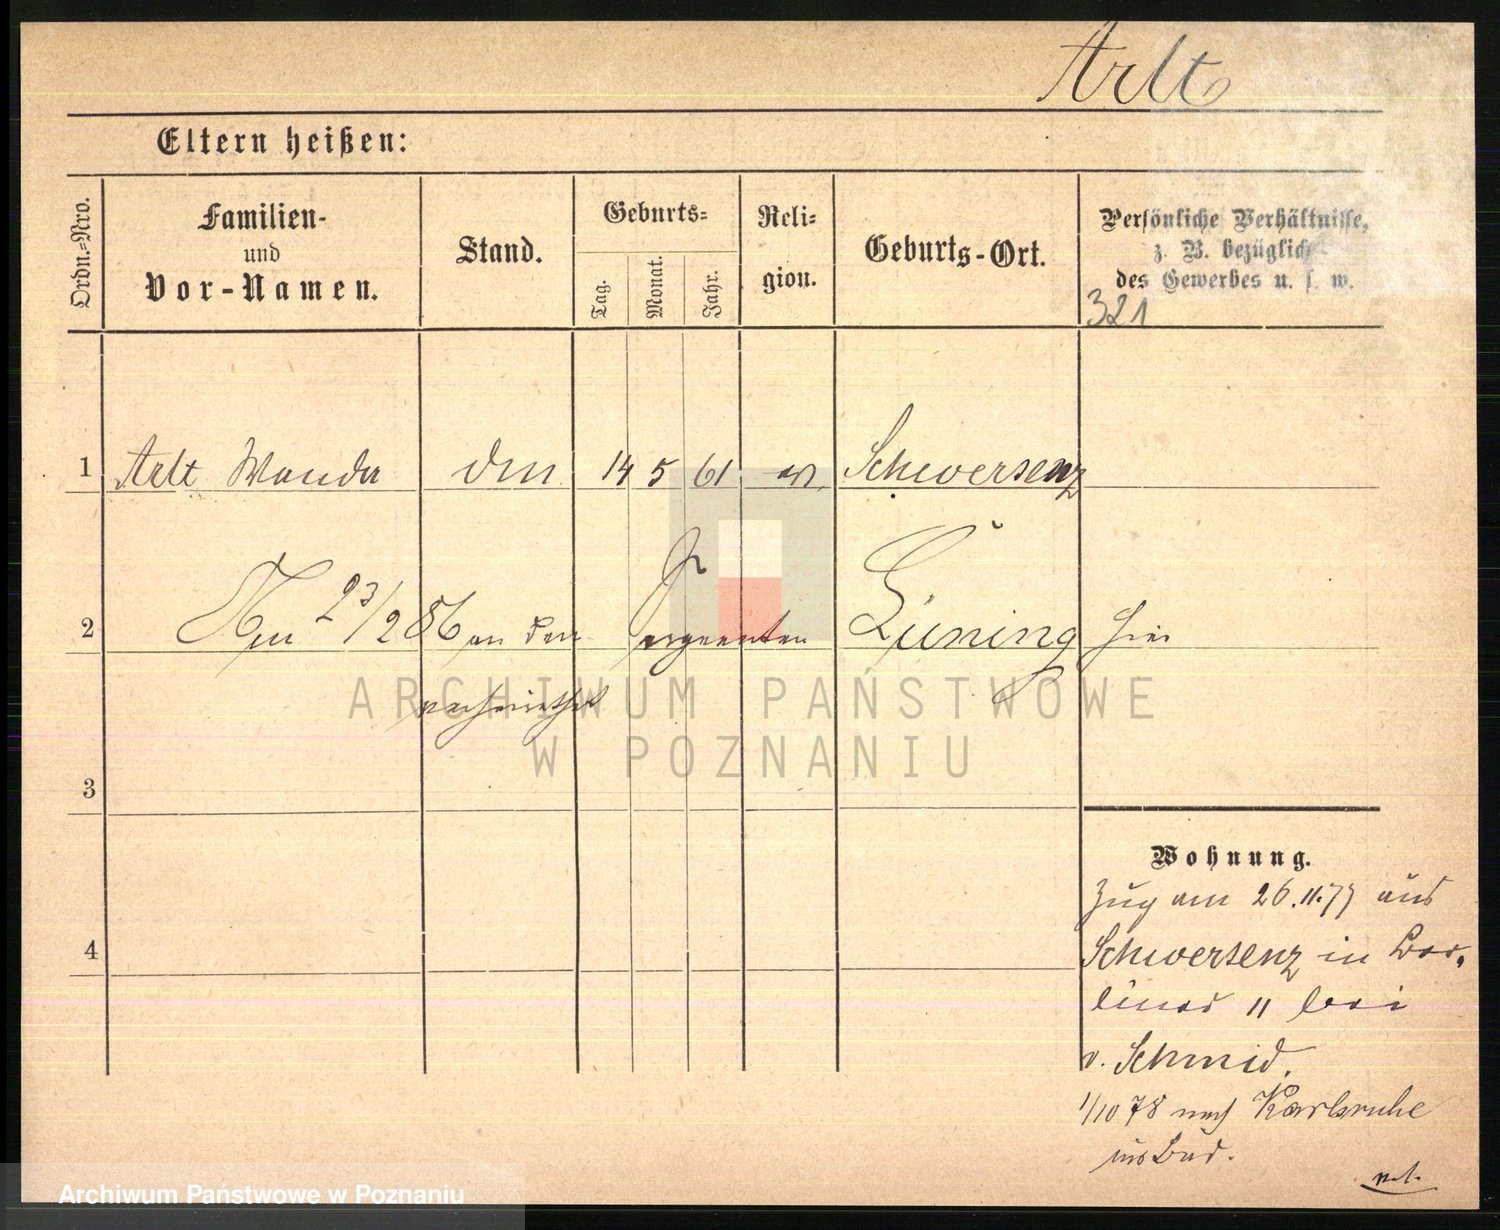 Arlt
Eltern heißen:
Ordn.-Nro.
Familien-
und
Vor-Namen.
Stand.
Geburts-
Tag.
Monat.
Jahr.
Reli-
gion.
Geburts-Ort.
Persönliche Verhältnisse,
z. B. bezüglich
des Gewerbes u. s. w.
321
1 Arlt Wanda 14 5 61 Schwersenz
2 23/2 86 an den Sergeanten Lüning hier
verheirathet
ARCHIWUM PAŃSTWOWE
W POZNANIU
3
4
Wohnung.
Zug am 26.11.77 aus
Schwersenz in Ber-
liner 11 bei
v. Schmid.
1/10 78 nach Karlsruhe
ins Bad.
Archiwum Państwowe w Poznaniu